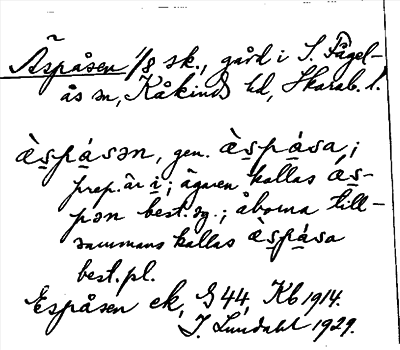 Äspåsen 1/8 sk., gård i S. Fågel-
ås sn, Kåkinds hd, Skarab. l.
ὰspásən, gen. ὰspása;
prep. är i; ägaren kallas ás-
pən best. sg.; åborna till-
sammans kallas ὰspása
best. pl.
Espåsen ek, § 44, Kb 1914.
I. Lundahl 1929.